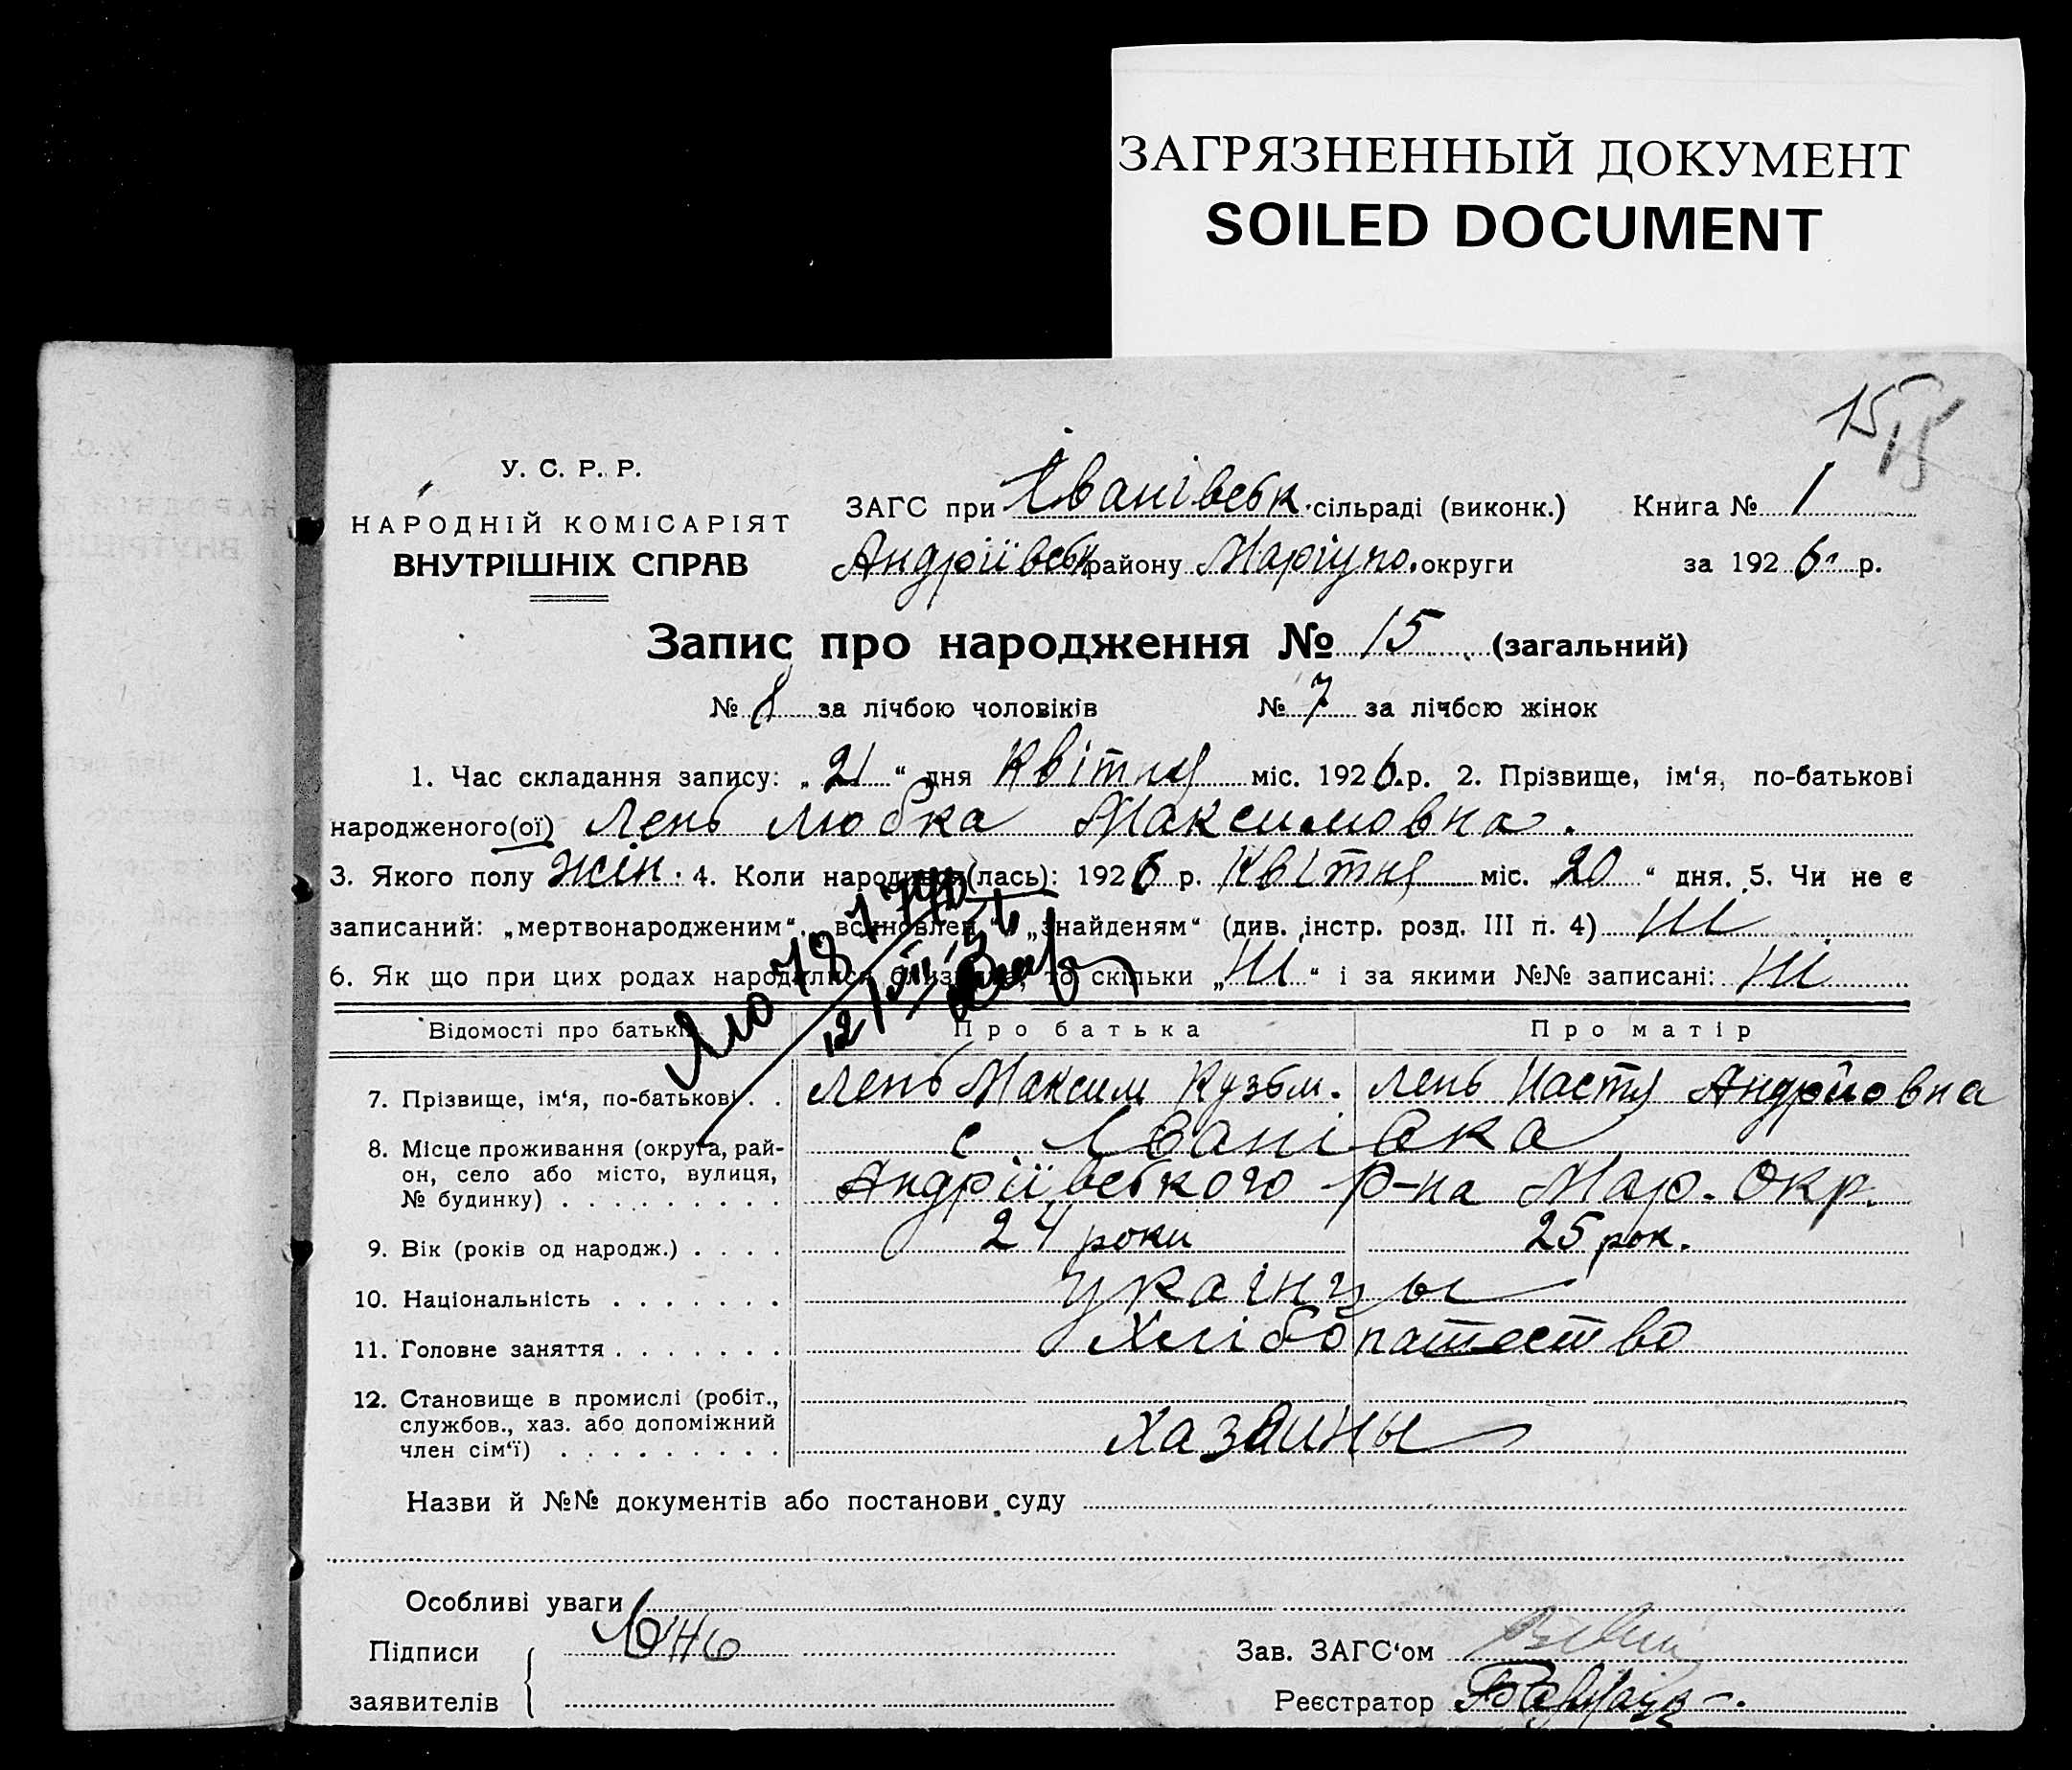 ЗАГРЯЗНЕННЫЙ ДОКУМЕНТ
SOILED DOCUMENT
15
15
У. С. Р. Р.
НАРОДНІЙ КОМІСАРІЯТ
ВНУТРІШНІХ СПРАВ
ЗАГС при Іванівськ. сільраді (виконк.) Книга № 1
Андріївськ району Маріупо. округи за 1926 р.
Запис про народження № 15 (загальний)
№ 8 за лічбою чоловіків № 7 за лічбою жінок
1. Час складання запису: „21“ дня Квітня міс. 1926 р. 2. Прізвище, ім‘я, по-батькові
народженого(ої) Лень Любка Максимовна.
3. Якого полу жін. 4. Коли народився(лась): 1926 р. Квітня міс. „20“ дня. 5. Чи не є
записаний: „мертвонародженим“, „всиновлен.“, „знайденям“ (див. інстр. розд. III п. 4) Ні
6. Як що при цих родах народилися близнята, то скільки „Ні“ і за якими №№ записані: Ні
Відомості про батьків Про батька Про матір
7. Прізвище, ім‘я, по-батькові . . Лень Максим Кузьм. Лень Настя Андрійовна
8. Місце проживання (округа, рай- с. Іванівка
он, село або місто, вулиця, Андріївського р-на Мар. Окр.
№ будинку) . . . . . . . . .
9. Вік (років од народж.) . . . . 24 роки 25 рок.
10. Національність . . . . . . . українцы
11. Головне заняття . . . . . . . Хлібопашество
12. Становище в промислі (робіт.,
службов., хаз. або допоміжний
член сім‘ї) . . . . . . . . . хазяины
Назви й №№ документів або постанови суду
Особливі уваги
Підписи
заявителів
Зав. ЗАГС‘ом
Реєстратор